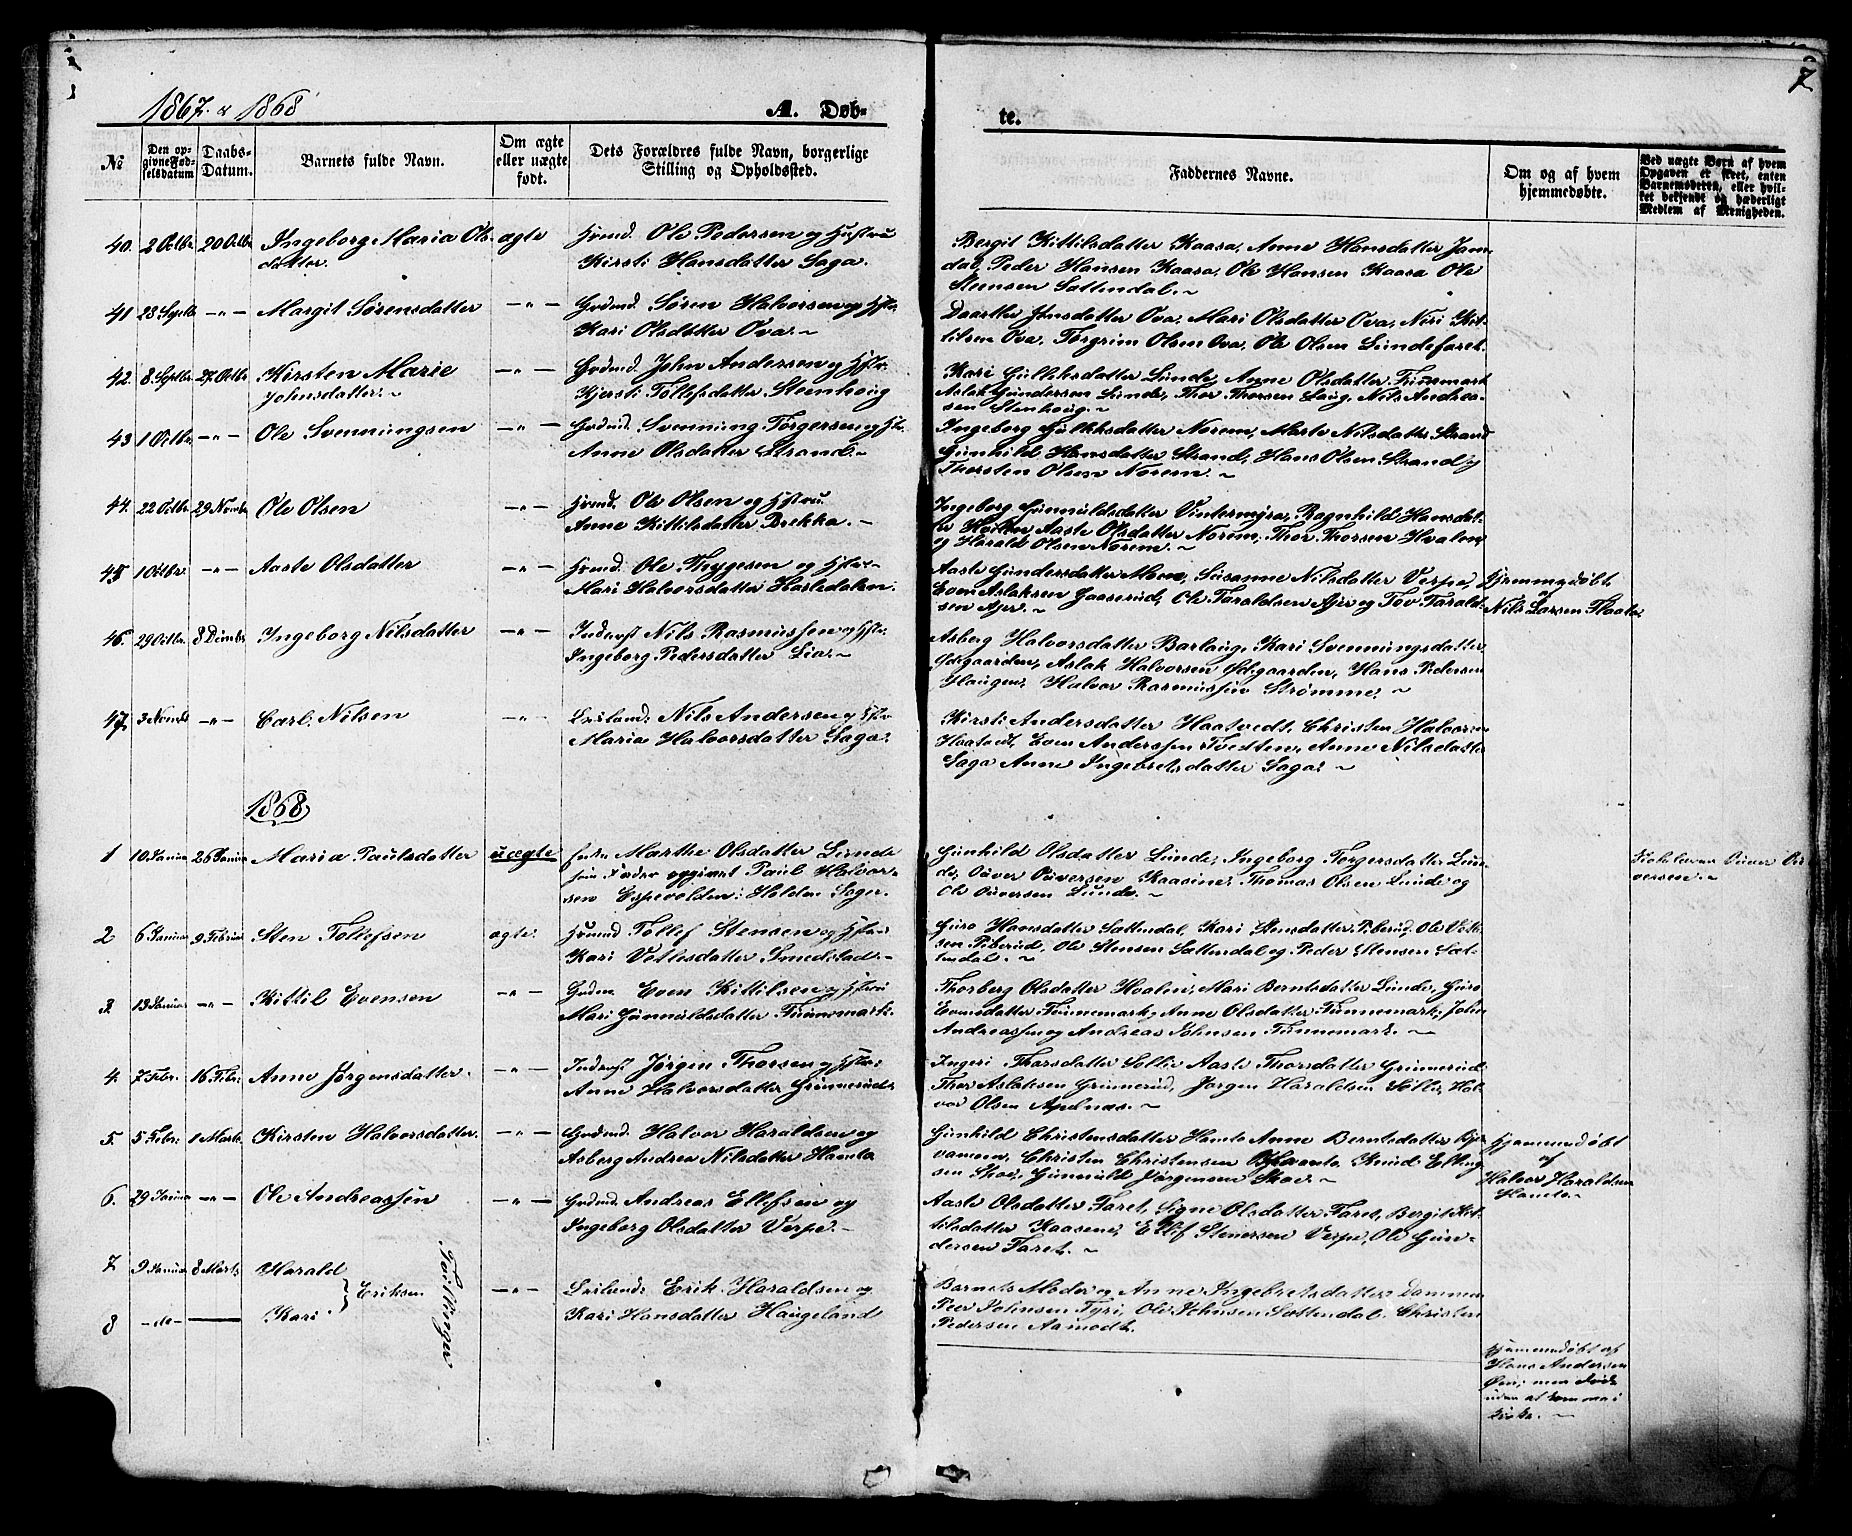 1867 & 1868
A. Døb-
te.
7
№
Den op-
givne Fød-
selsdatum
Daabs-
Datum.
Barnets fulde Navn.
Om ægte
eller uægte
født.
Dets Forældres fulde Navn, borgerlige
Stilling og Opholdssted.
Faddernes Navne.
Om og af hvem
hjemmedøbte.
Ved uægte Børn af hvem
Opgaven er skeet, enten
Barnemoderen, eller hvil-
ket dekjendt og hæderligt
Medlem af Menigheden.
40. 2 Octbr 20 Octbr Ingeborg Maria Ols- ægte Hmd. Ole Pedersen og Hustru
datter. Kirsti Hansdatter Saga.
Bergit Kittilsdatter Kaasa, Anne Hansdatter
Peder Hansen Kaasa, Ole Hansen Kaasa Ole
Steensen Sattendal.~
41 23 Septbr -„- Margit Sørensdatter -„- Grdmd. Søren Halvorsen og Hstr.
Kari Olsdatter Ova.~
Jensdatter Ova, Mari Olsdatter Ova, Neri Kit-
tilsen Ova, Torgrim Olsen Ova, Ole Olsen Lundefaret.
42. 8 Septbr 27 Octbr Kirsten Marie -„- Grdmd. John Andersen og Hstr.
Johnsdatter.~ Kjersti Tollefsdatter Steenhoug
Kari Gulliksdatter Lunde, Anne Olsdatter Funnemark
Aslak Gundersen Lunde, Thor Thorsen Laug, Nils Andrea-
sen Stenhoug.~
43 1 Octbr -„- Ole Svenningsen -„- Grdmd. Svenning Torgersen og Hstr.
Anne Olsdatter Strand.~
Ingeborg Gulliksdatter Norem, Marte Nilsdatter Strand
Gunhild Hansdatter Strand, Hans Olsen Strand og
Thorsten Olsen Norem.~
44. 22 Octbr 29 Novbr Ole Olsen -„- Hmd. Ole Olsen og Hstru.
Anne Kittilsdatter Brekka.-
Ingeborg Gunnuldsdatter Vintermyra, Ragnhild Hansdat-
ter Aaste Olsdatter Norem, Thor Thorsen Hvalen
og Harald Olsen Norem.~
45 1 Octbr. -„- Aaste Olsdatter -„- Hmd. Ole Thygesen og Hstr.-
Mari Halvorsdatter Hasledalen.
Aaste Gundersdatter Moen, Susanne Nilsdatter Verpe,
Even Aslaksen Gaaserud, Ole Taraldsen Ajer og Tov Tarald-
sen Ajer.~
Hjemmedøbt
af
Nils Larsen
46. 29 Octbr. 8 Decmbr Ingeborg Nilsdatter -„- Inderst Nils Rasmussen og Hstr.
Ingeborg Pedersdatter Lia.~
Asberg Halvorsdatter Barlaug, Kari Svenningsdatter
Ødegaarden, Aslak Halvorsen Ødegaarden, Hans Pedersen
Haugen, Halvor Rasmussen Strømme.~
47. 3 Novbr -„- Carl Nilsen -„- Leilænd: Nils Andersen og Hstr
Maria Halvorsdatter Saga.
Kirsti Andersdatter Haatvedt, Christen Halvorsen
Haatvedt, Even Anderssen Tvedten, Anne Nilsdatter
Saga Anne Ingebretsdatter Saga.~
1868
1 10 Januar 26 Januar Maria Paulsdatter uægte Marthe Olsdatter Lunde
Fader opgivet Paul Halvor-
sen Espevolden: Holden Sogn.
Gunhild Olsdatter Lunde, Ingeborg Torgersdatter Lun-
de, Ouver Ouversen Kaasine, Thomas Olsen Lunde og
Ole Ouversen Lunde.~
Kirkesanger Ouver Ou-
versen.~
2 6 Januar 9 Februar Sten Tollefsen ægte. Hmd Tollef Stensen og Hstru
Kari Vetlesdatter Smedstad.-
Guro Hansdatter Sattendal, Kari Stensdatter Piberud, Ole Vetle-
sen Piberud, Ole Stensen Sattendal og Peder Stensen Sat-
tendal.~
3. 13 Januar -„- Kittil Evensen -„- Grdm. Even Kittilsen og Hstru
Mari Gunnuldsdatter Funnemark.
Thorberg Olsdatter Hvalen, Mari Berntsdatter Lunde, Guro
Evensdatter Funnemark, Anne Olsdatter Funnemark, John
Andreassen og Andreas Johnsen Funnemark.~
4. 7 Febr. 16 Febr. Anne Jørgensdatter. -„- Inderst Jørgen Thorsen og Hstru
Anne Halvorsdatter Grinnerud.
Ingeri Thorsdatter Sollie Aaste Thorsdatter Grinnerud
Thor Aslaksen Grinnerud, Jørgen Haraldsen Sollie, Hal-
vor Olsen Apelnæs.~
5. 5 Febr. 1 Marts Kirsten Halvorsdatter. -„- Grdmd. Halvor Haraldsen og
Asberg Andrea Nilsdatter Hamto
Gunhild Christensdatter Hamto Anne Berntsdatter
Christen Christensen Knud
sen Skoe, Gunnuld Jørgensen Skoe.~
Hjemmedøbt
af
Halvor Haraldsen
Hamto~
6. 29 Januar -„- Ole Andreassen -„- Grdmd. Andreas Ellefsen og
Ingeborg Olsdatter Verpe.-
Aaste Olsdatter Faret, Signe Olsdatter Faret, Bergit Kit-
tilsdatter Kaasene, Ellef Stenersen Verpe, Ole Gun-
dersen Faret.~
7 9 Januar 8 Marts Harald } Eriksen Tvillinger -„- Leilænd: Erik Haraldsen og
8 -do- — Kari. Kari Hansdatter Haugeland
Barnets Moder og Anne Ingebretsdatter Dammen
Peer Johnsen Tyri, Ole Johnsen Sattendal. Christen
Pedersen Aamodt.
Hjemmedøbt af
Hans Andersen
Øen; men død
uden at komme i
Kirke.~